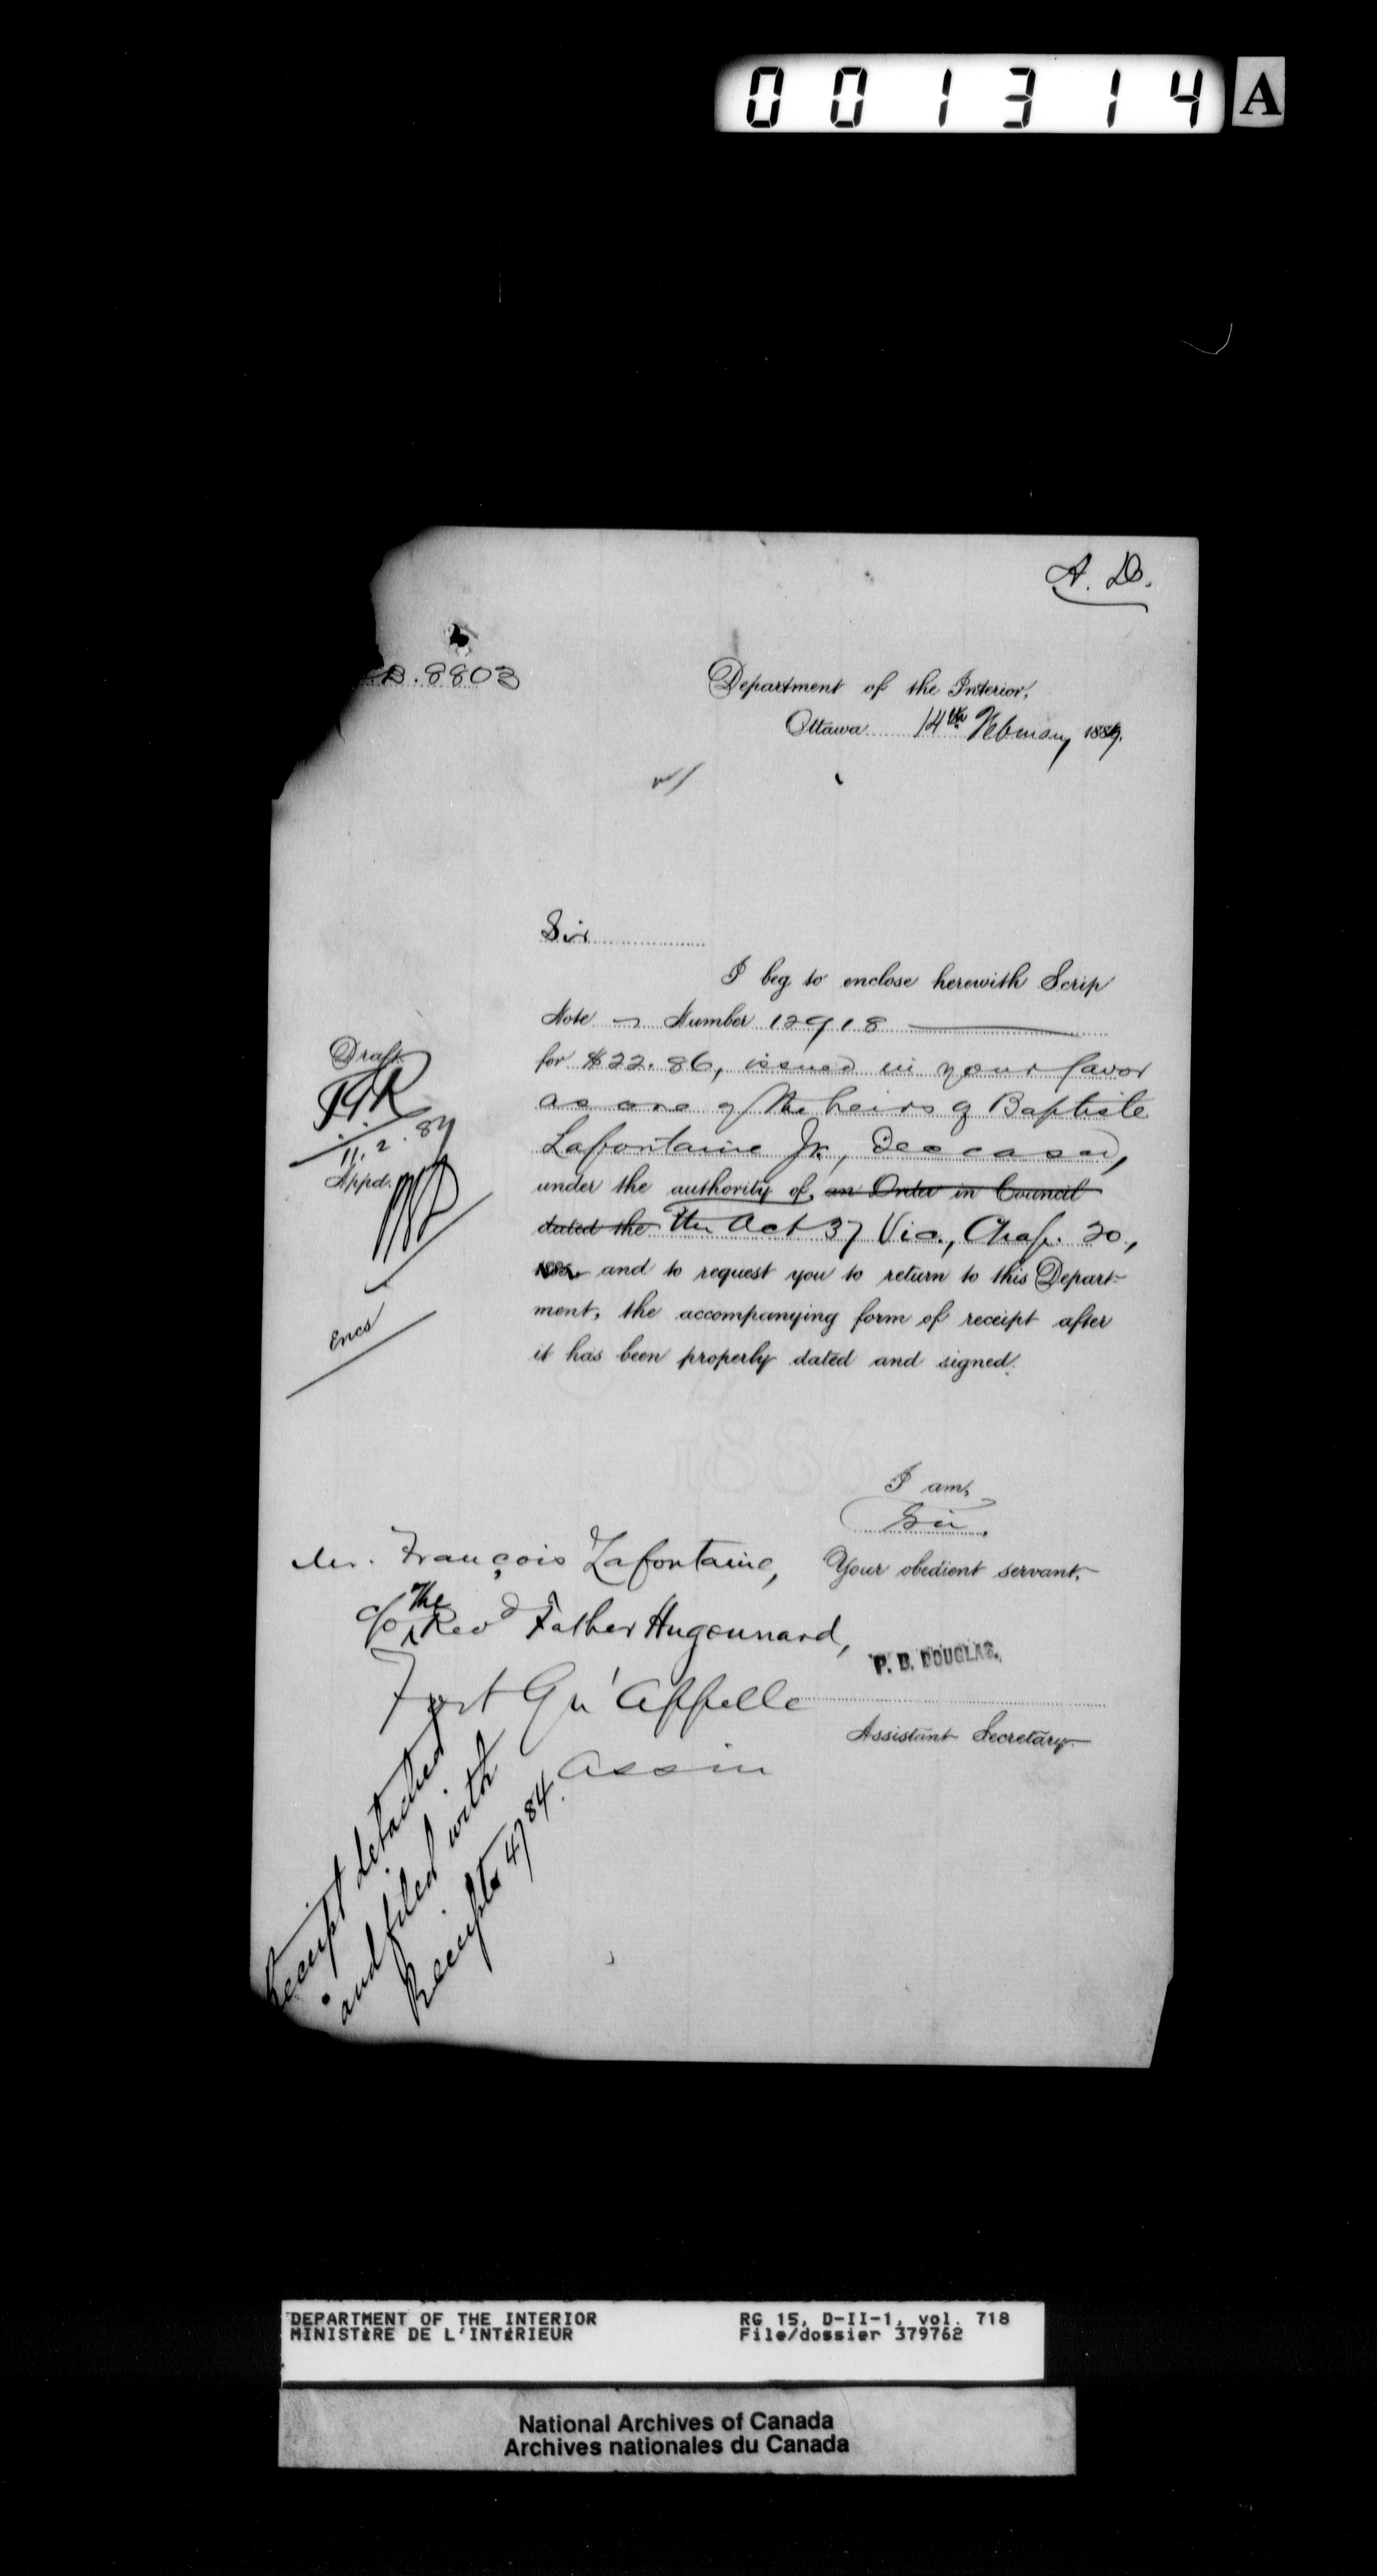 001314 A
A. D.
B. 8803
Department of the Interior,
Ottawa 14th February 1889.
Sir
I beg to enclose herewith Scrip
Note Number 12918
for $22.86, issued in your favor
as one of the heirs of Baptiste
Lafontaine Jr., Deceased,
under the authority of, an Order in Council
dated the the Act 37 Vic., Chap. 20,
and to request you to return to this Depart-
ment, the accompanying form of receipt after
it has been properly dated and signed.
Draft
11.2.89
Appd.
Encs
I am,
Sir.
Your obedient servant,
P. B. DOUGLAS.
Assistant Secretary.
Mr. François Lafontaine,
c/o The Revd Father Hugonnard,
Fort Qu'Appelle
Assin
Receipt detached
and filed with
Receipts 4784.
DEPARTMENT OF THE INTERIOR RG 15, D-II-1, vol. 718
MINISTÈRE DE L'INTÉRIEUR File/dossier 379762
National Archives of Canada
Archives nationales du Canada